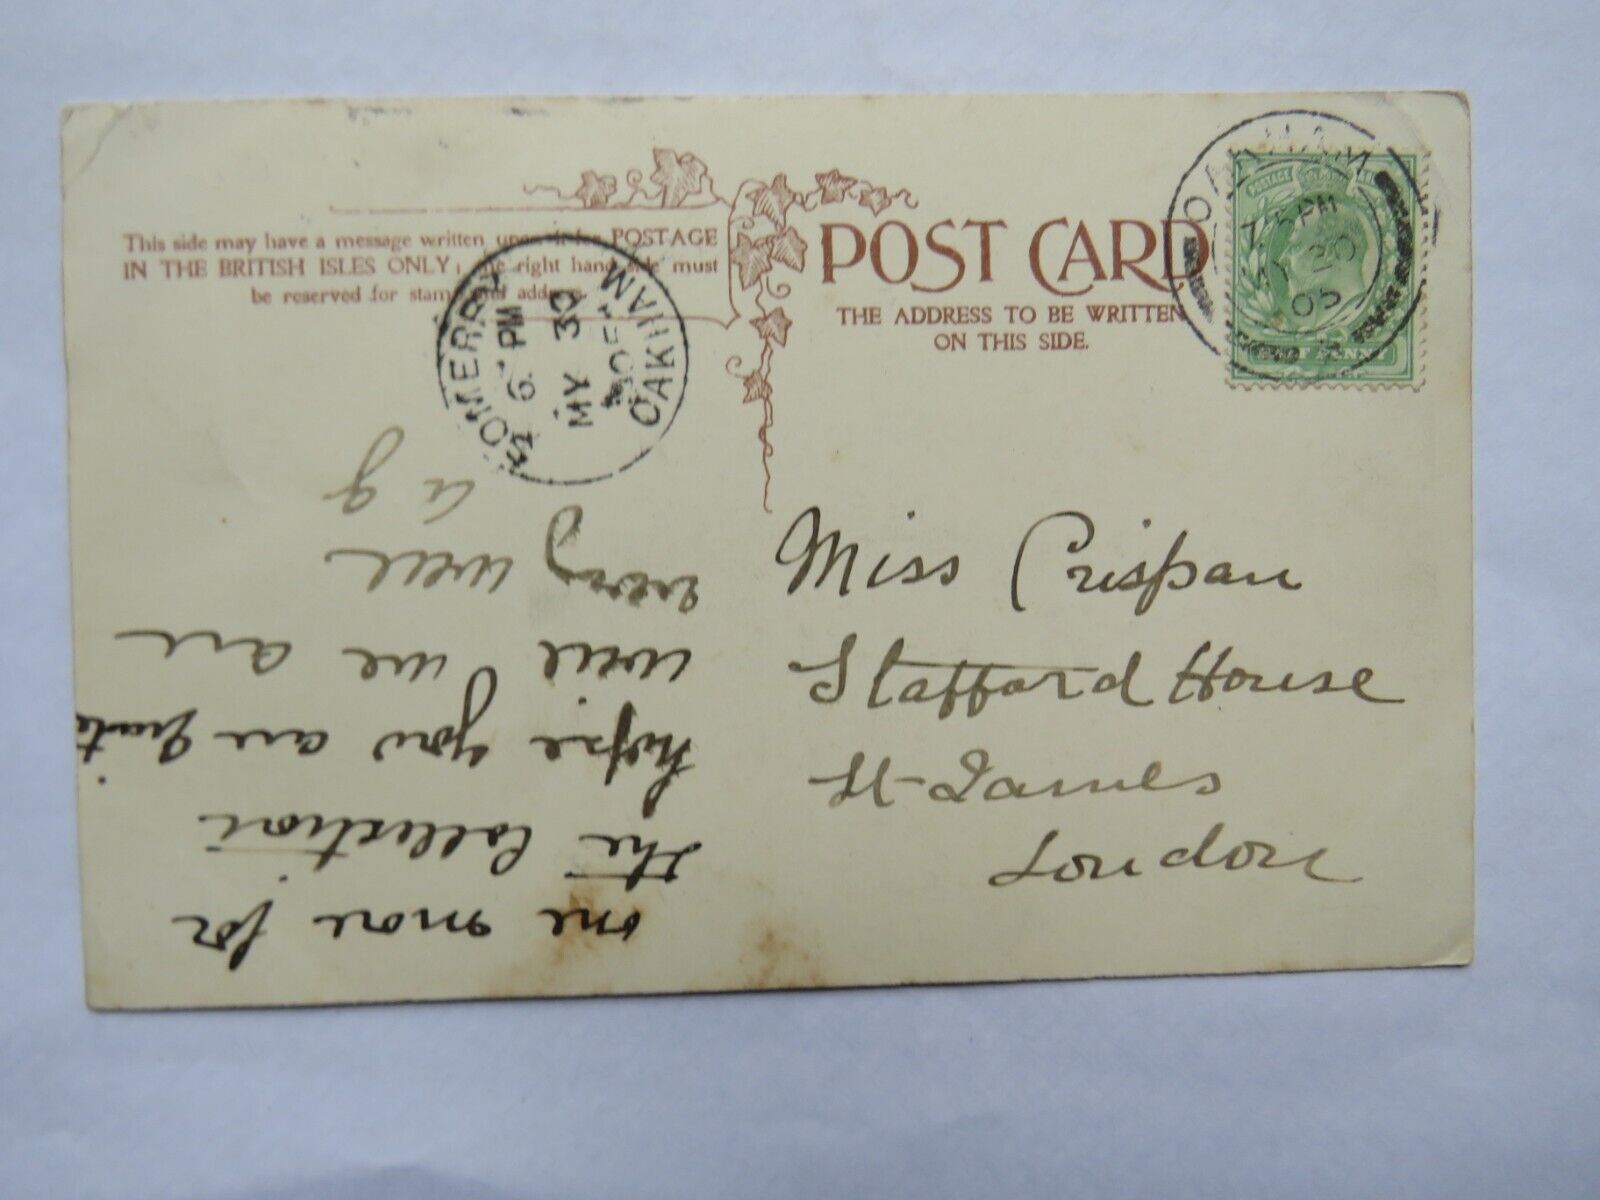 This side may have a message written upon it for POSTAGE
IN THE BRITISH ISLES ONLY; the right hand side must
be reserved for stamp and address.
POST CARD
THE ADDRESS TO BE WRITTEN
ON THIS SIDE.
OAKHAM
7.5 PM
MY 30
05
POSTAGE
HALF PENNY
SOMERBY
6. PM
MY 30
05
OAKHAM
Miss Crispan
Stafford House
St James
London
one more for
the Collection
hope you are quite
well we are
very well